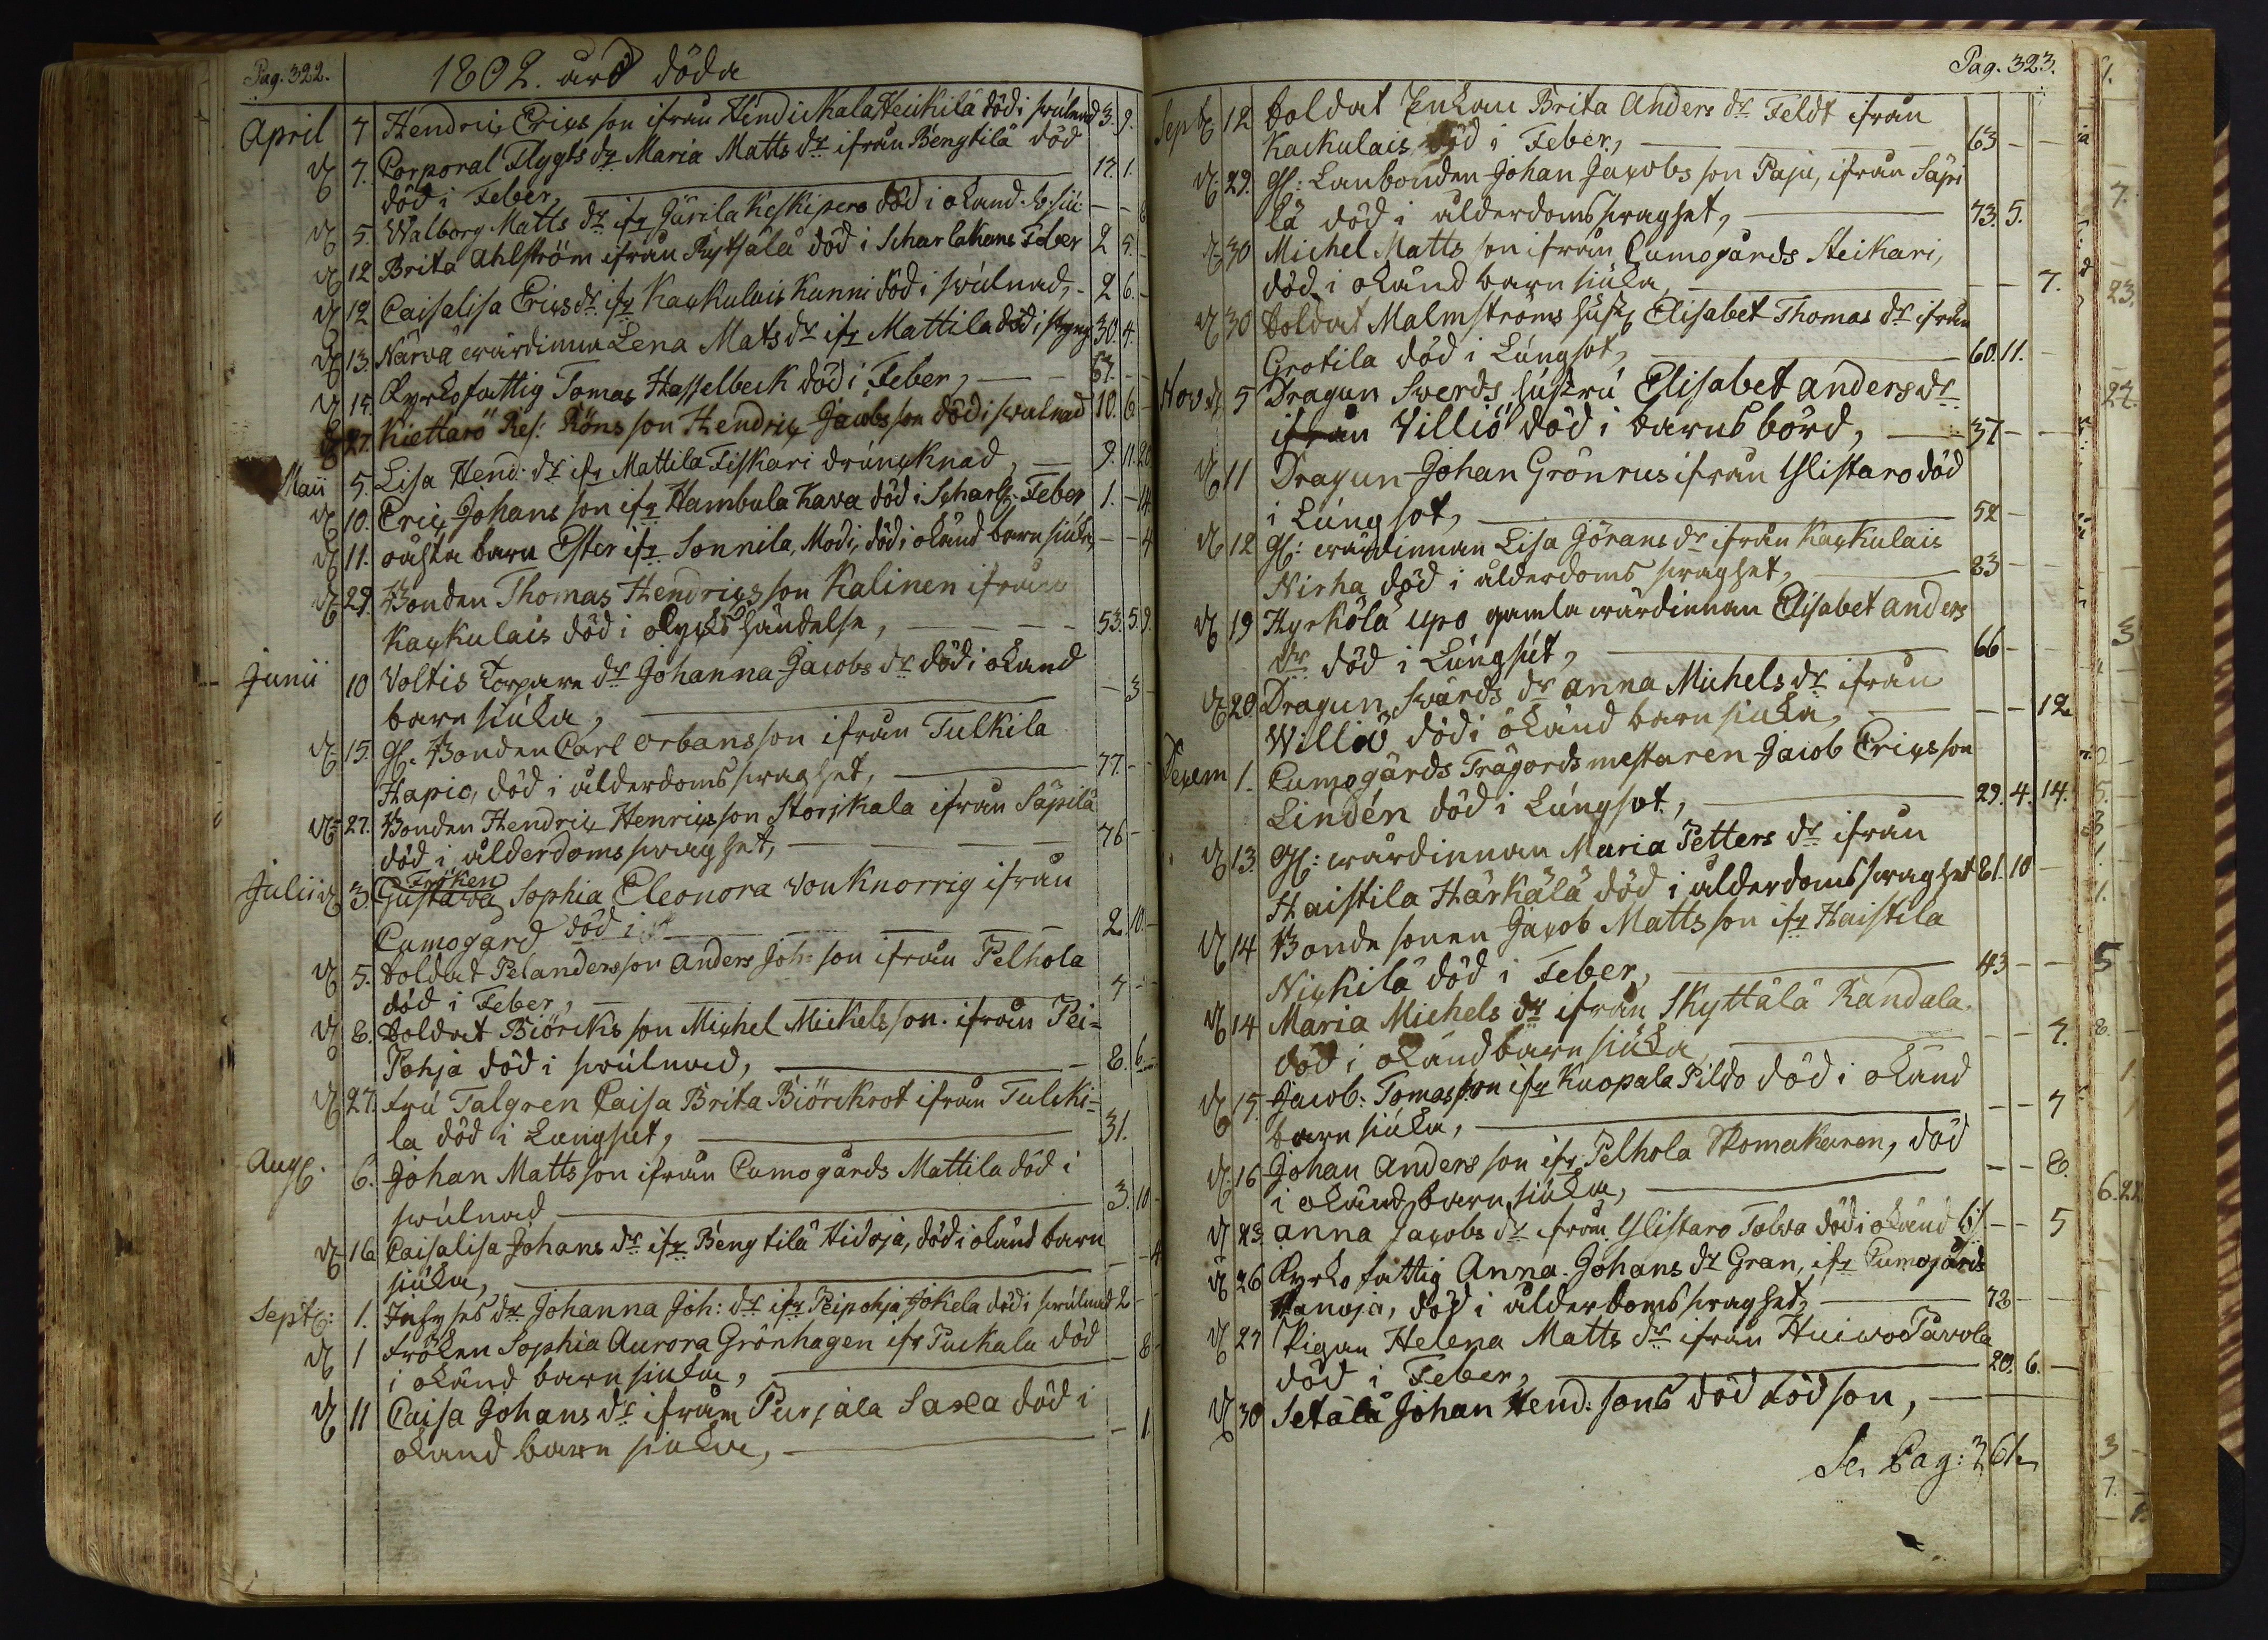 Pag. 322.
1802. års döda
April 7 Hendric Ericsson ifrån Hindickala Heickilä död i svulnad 3. 9.
7. Corporal Flygts dr Maria Matts dr ifrån Bengtilä död
död i Feber, 17. 1.
5. Walborg Matts dr ifr Järila Keskipero död i okänd b. siu: - - 8
12 Brita Ahlström ifrån Ryttsälä död i Scharlakans Feber 2 5. -
12 Caisalisa Erics dr ifr Kackulais Kunni död i svulnad, - 2 6. -
13. Närvä wärdinna Lena Mats dr ifr Mattila död i styng 30. 4.
15. Kyrkofattig Tomas Hasselbeck död i Feber, 67. - -
27. Kiettarö Res: Röns son Hendric Jacobsson död i svulnad 10. 6 -
Maii 5. Lisa Hend: dr ifr Mattila Fiskari drunknad, 9. 11. 20
10. Eric Johans son ifr Hambula Kava död i Scharl. Feber 1. - 14
11. oäkta barn Ester ifr Sonnila, Modi, död i okänd barn siuka, - - 4
29. Bonden Thomas Hendricsson Kalinen ifrån
Kackulais död i olycks händelse, 53. 5. 9.
Junii 10 Voltis Torpare dr Johanna Jacobs dr död i okänd
barn siuka, - 3 -
15. Gl. Bonden Carl Orbansson ifrån Tulkila
Hapio, död i ålderdoms svaghet, 77. - -
27. Bonden Hendric Henricsson Storskala ifrån Säpilä
död i ålderdoms svaghet, 76 -
Fröken
Julii 3. Gustava Sophia Eleonora von Knorrig ifrån
Cumogård död i 2. 10. -
5. Soldat Pelandersson Anders Joh: son ifrån Pelhola
död i Feber, 7 - -
8. Soldat Biörcks son Michel Mickelsson. ifrån Pei-
Pohja död i svulnad, 8. 6. -
27. Fru Talgren Caisa Brita Biörckrot ifrån Tulcki-
la död i Lungsut, 31.
Aug. 6. Johan Mattsson ifrån Cumogårds Mattila död i
svulnad 3. 10 -
16 Caisalisa Johans dr ifr Bengtilä Hidoja, död i okänd barn
siuka, - - 4
Sept: 1. Inhyses dr Johanna Joh: dr ifr Peipohja Jokela död i svulnad 2 - -
1 Fröken Sophia Aurora Grönhagen ifr Puckala död
i okänd barn siuka, - 8 -
11 Caisa Johans dr ifrån Purjala Saxa död i
okänd barn siuka, - 1.
Pag. 323.
Sept 12 Soldat Enkan Brita Anders dr Feldt ifrån
Kackulais död i Feber, 63 - -
29. Gl: Lanbonden Johan Jacobs son Paju, ifrån Säpi
lä död i ålderdoms svaghet, 73. 5.
30 Michel Matts son ifrån Cumogårds Steikari,
död i okänd barn siuka, - - 7.
30 Soldat Malmströms hust Elisabet Thomas dr ifrån
Grotila död i Lungsot, 60. 11. -
Nov. 5 Dragun Swerds hustru Elisabet Anders dr
ifrån Villiö död i barnsbörd, 37 - -
11 Dragun Johan Grönrus ifrån Ylistaro död
i Lungsot, 52 -
12 Gl: wärdinnan Lisa Görans dr ifrån Kackulais
Nirha död i ålderdoms svaghet, 83 -
19 Hyrkölä Upo gamla wärdinnan Elisabet Anders
dr död i Lungsut, 66 -
20. Dragun Swärds dr Anna Michels dr ifrån
Williö död i okänd barn siuka, - - 12
Decem 1. Cumogårds Trägordsmestaren Jacob Ericsson
Lindén död i Lungsot, 29. 4. 14.
13. Gl: wärdinnan Maria Petters dr ifrån
Haistila Härkälä död i ålderdoms svaghet 81. 10 -
14 Bonde sonen Jacob Matts son ifr Haistila
Nickilä död i Feber, 43 - -
14 Maria Michels dr ifrån Skyttälä Randala
död i okänd barn siuka, - - 7.
15. Jacob: Tomasson ifr Kuopala Pildo död i okänd
barn siuka, - - 7
16 Johan Anders son ifr Pelhola Skomakaren, död
i okänd barn siuka, - - 8.
23. Anna Jacobs dr ifrån Ylistaro Tolva död i okänd b: - - 5
26 Kyrko fattig Anna Johans dr Gran, ifr Cumogårds
Hanoja, död i ålderdoms svaghet, 78 - -
27 Pigan Helena Matts dr ifrån Huivo Pavola
död i Feber, 20. 6. -
30 Setälä Johan Hend: sons död född son,
Se, Pag: 361.